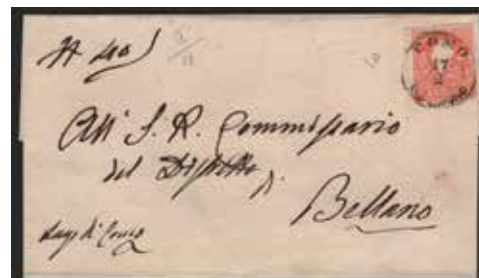 COMO
17
2
All' I. R. Commissario
del Distretto di
Bellano
Lago di Como